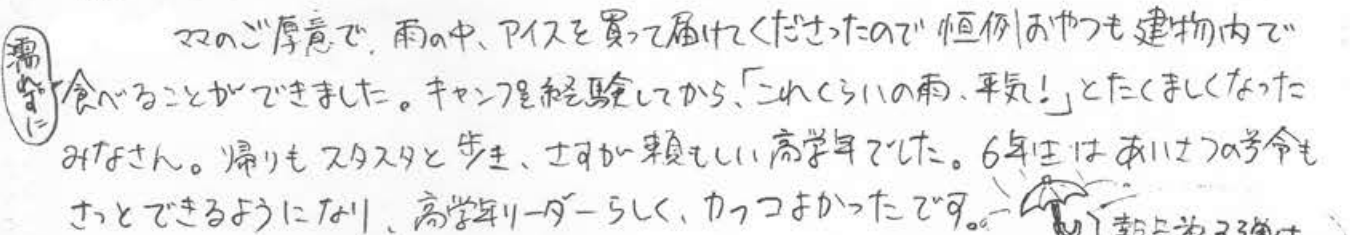 ママのご厚意で、雨の中、アイスを買って届けてくださったので恒例おやつも建物内で
濡れずに
食べることができました。キャンプを経験してから、「これくらいの雨、平気!」とたくましくなった
みなさん。帰りもスタスタと歩き、さすが頼もしい高学年でした。6年生はあいさつの号令も
さっとできるようになり、高学年リーダーらしく、カッコよかったです。